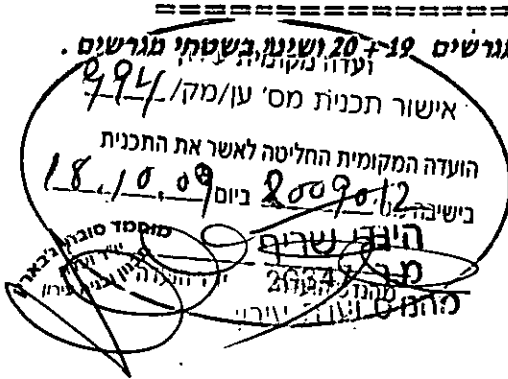 מגרשים 19 + 20 ושינוי בשטחי מגרשים .
ועדה מקומית עירון
אישור תכנית מס' ען/מק/ 994
הועדה המקומית החליטה לאשר את התכנית
בישיבה מס' 2009012 ביום 18.10.09
מוחמד סובחי ג'בארין
יו"ר ועדת
תכנון ובניה עירון
יו"ר הועדה
הינדי שריף
מ.ר. 20347
מהנדס הועדה
מהנדס ועדת עירון